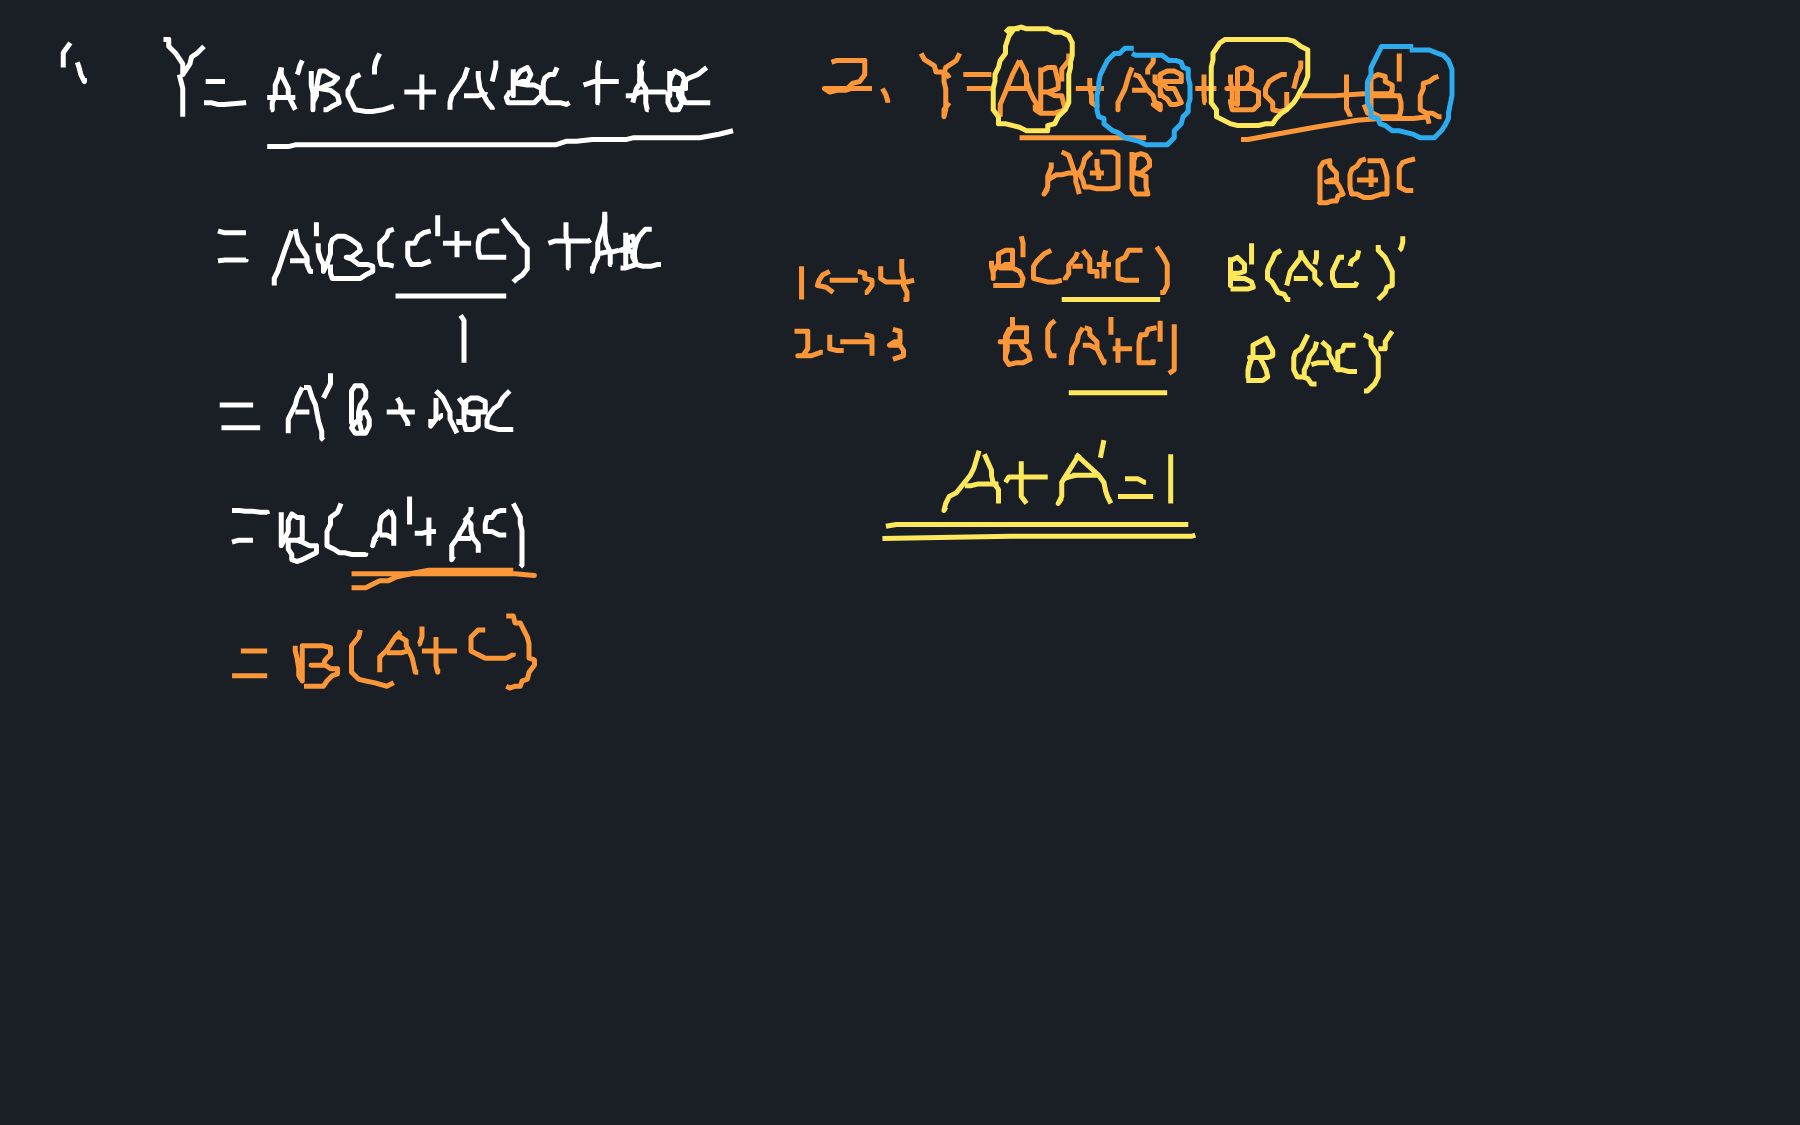 1, Y = A'BC' + A'BC + ABC
= A'B(C'+C) + ABC
1
= A'B + ABC
= B(A'+AC)
= B(A'+C)
2, Y = AB' + A'B + BC' + B'C
A⊕B B⊕C
1↔4 B'(A+C) B'(A'C')'
2↔3 B(A'+C') B(AC)'
A+A'=1